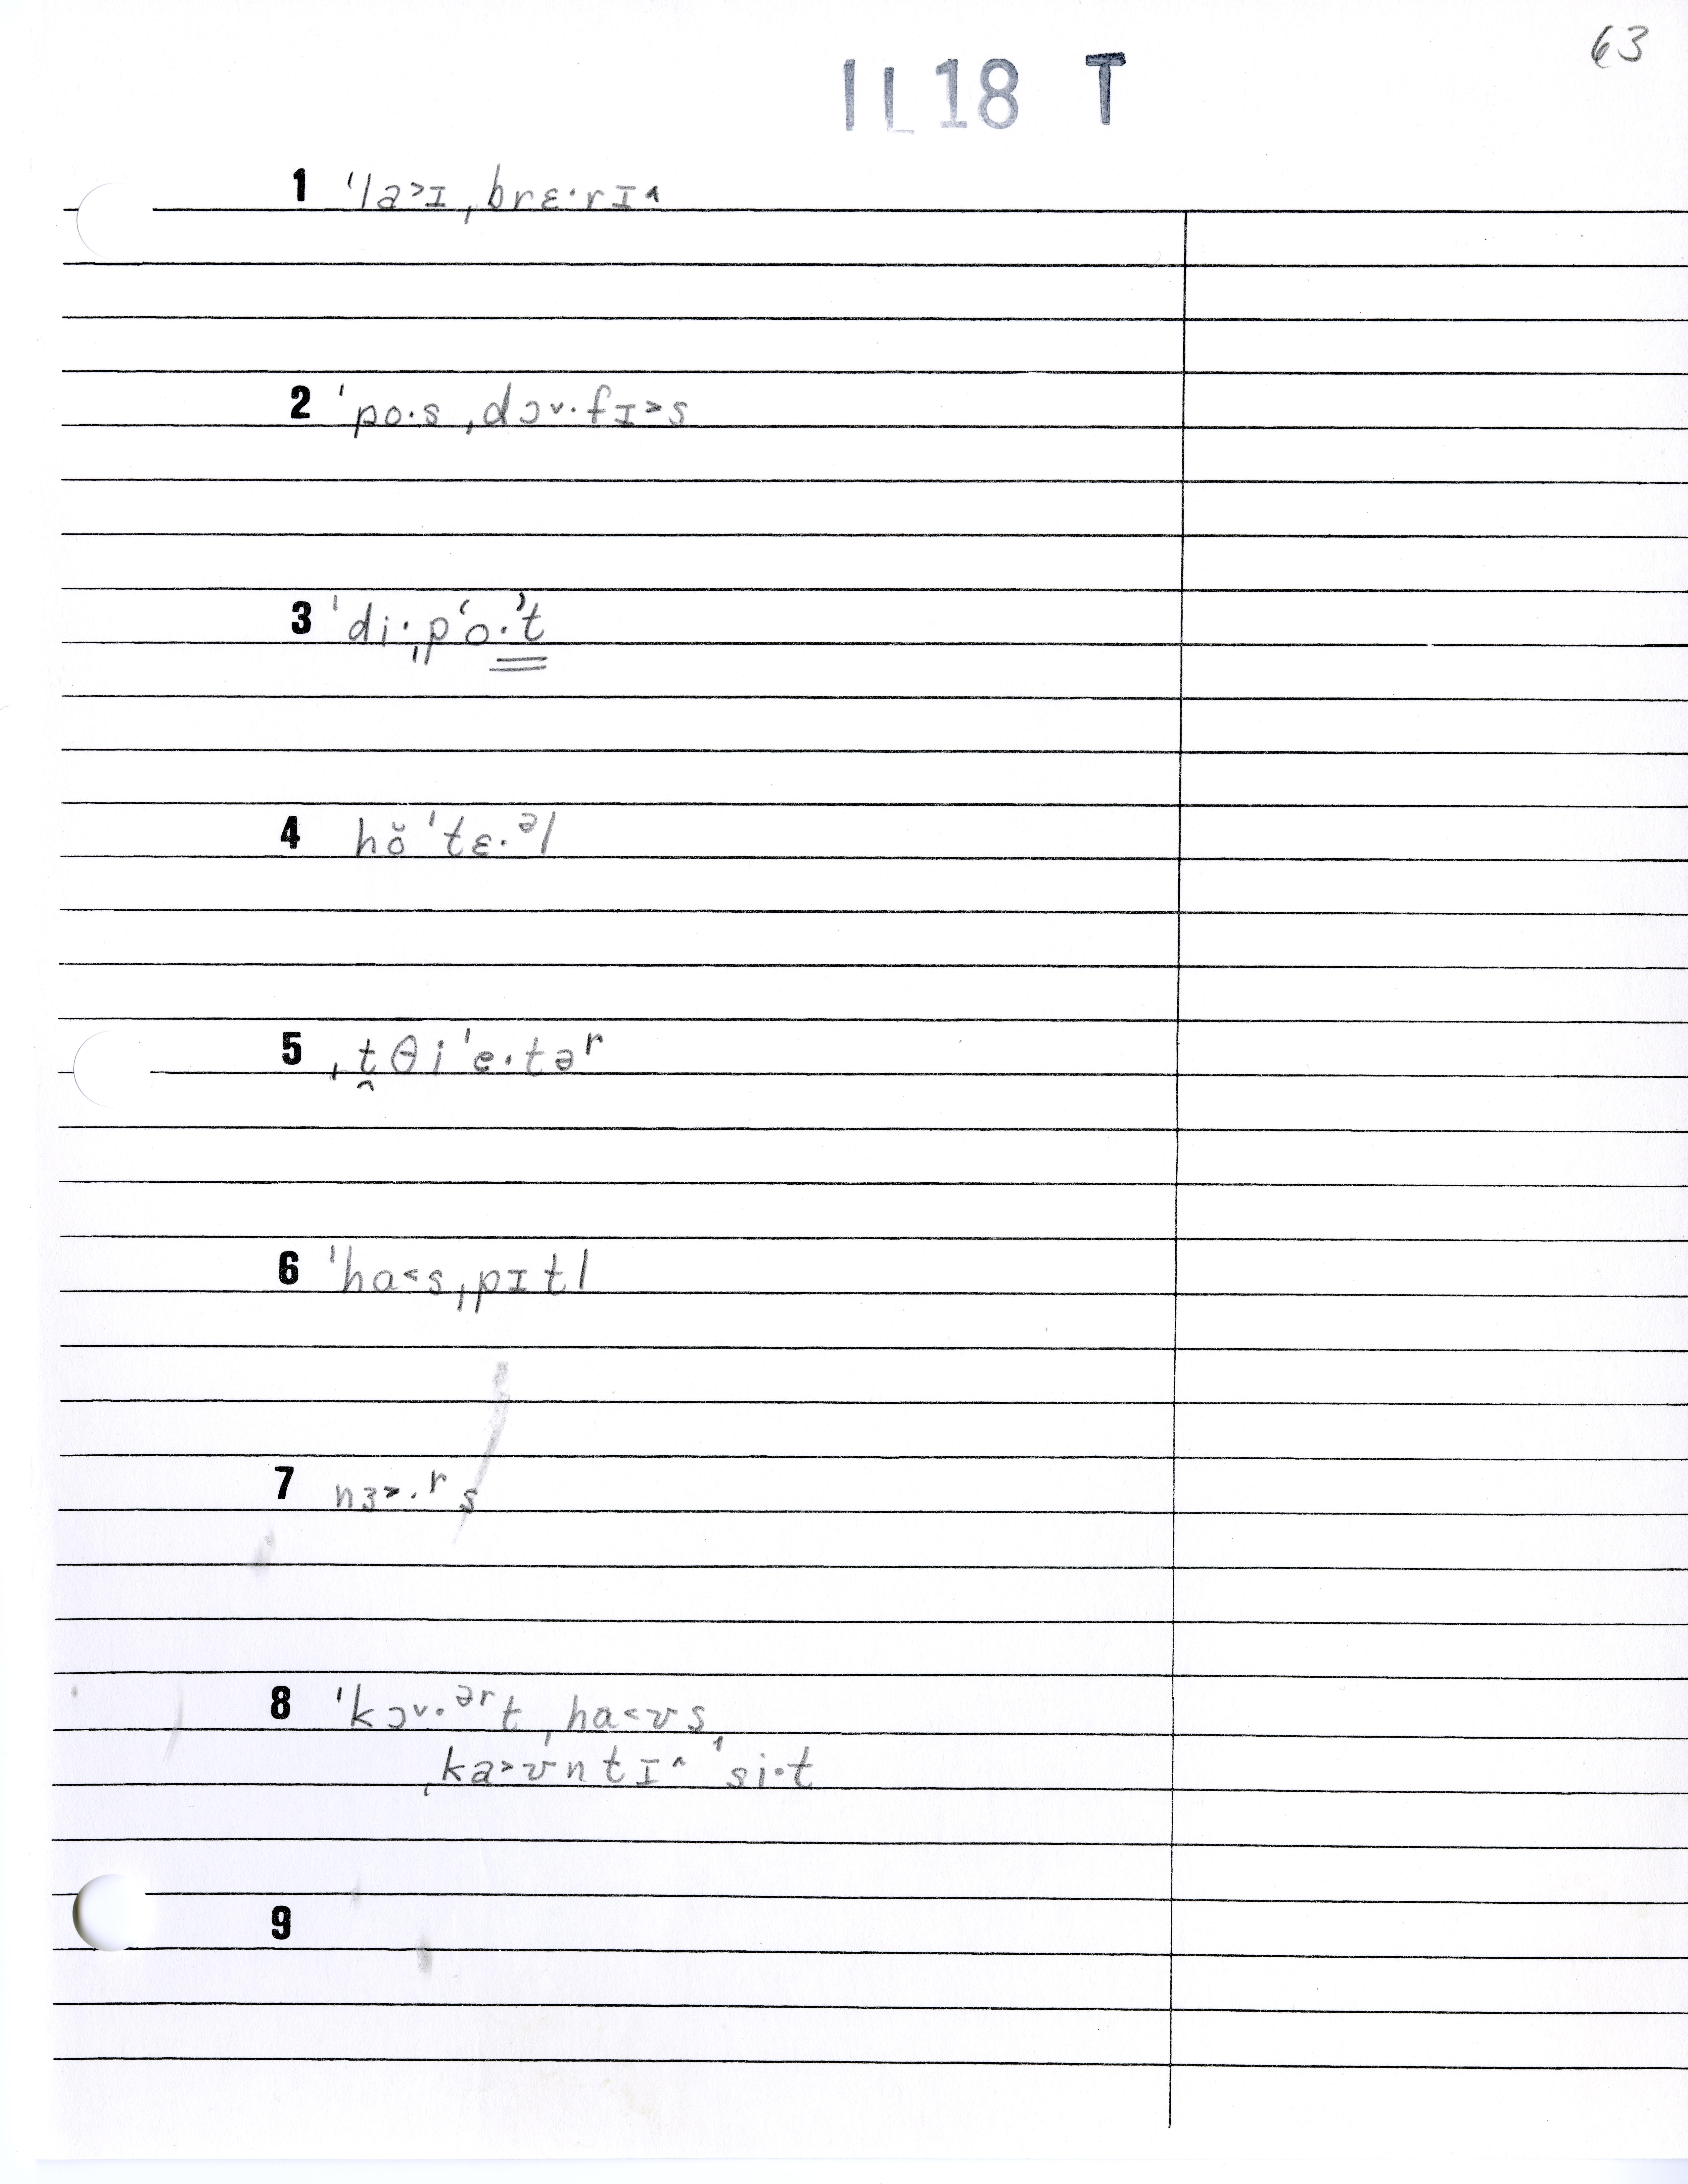 63
IL18 T
1 ˈla˃ɪˌbrɛ·rɪ^
2 ˈpo·sˌdɔ˅·fɪ˃s
3 ˈdi·ˌpʻo·ʼt
4 hŏˈtɛ·ᵊl
5 ˌt̯θiˈe·təʳ
6 ˈhɑ˂sˌpɪtl
7 nɜ˃·ʳs
8 ˈkɔ˅·ᵊʳtˌha˂ʊs
ˌka˃ʊntɪ^ˈsi·t
9